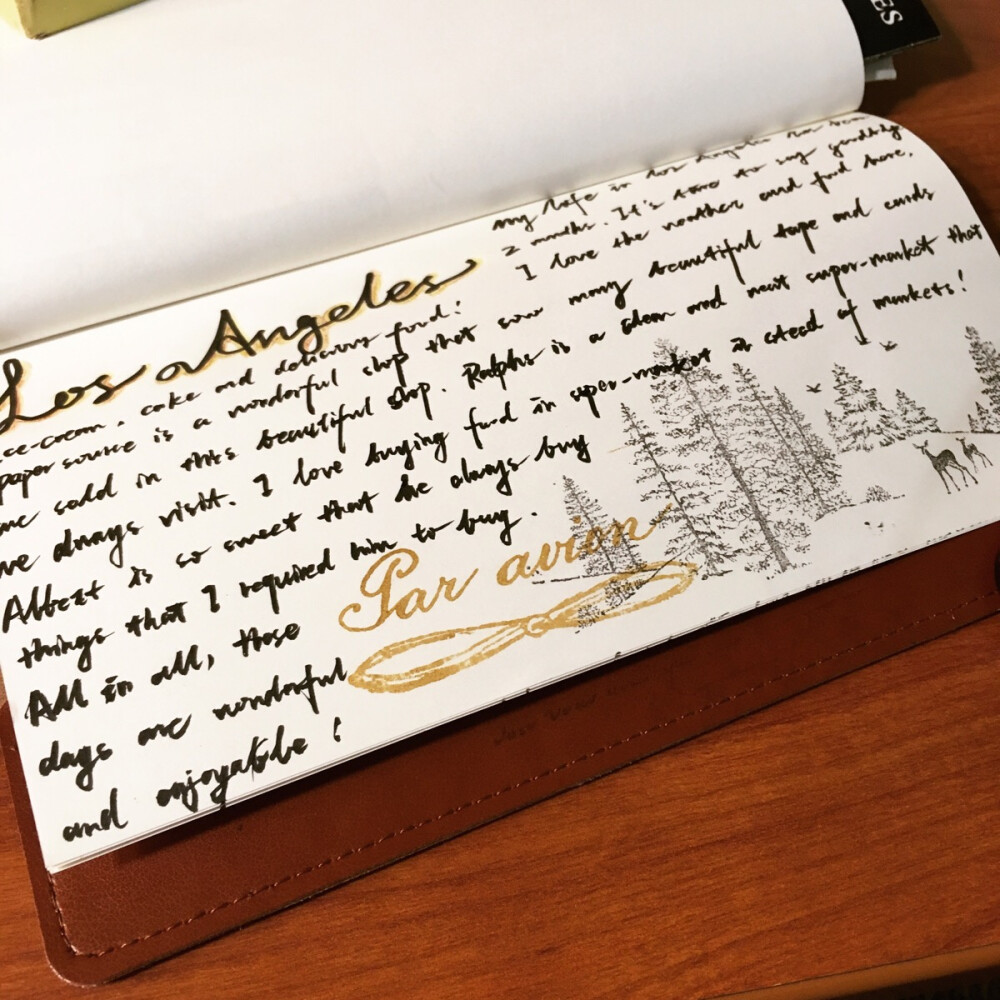 ES
my life in Los Angeles has been
2 months. It's time to say goodbye
I love the weather and food here,
Los Angeles
ice-cream, cake and delicious food!
paper source is a wonderful shop that many beautiful tape and cards
are sold in this beautiful shop. Ralphs is a clean and neat super-market that
we always visit. I love buying food in super-market in stead of markets!
Albert is so sweet that he always buy
things that I required him to buy.
All in all, those
days are wonderful
and enjoyable!
Par avion